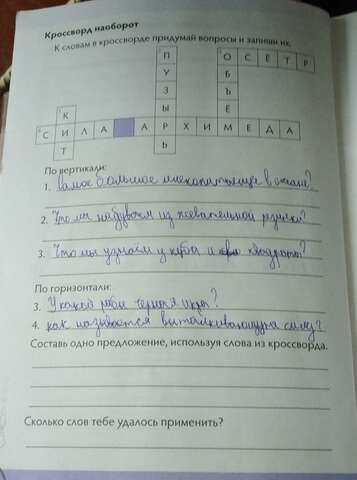 Кроссворд наоборот
К словам в кроссворде придумай вопросы и запиши их.
П О С Ё Т Р
У Б
З Ъ
К Ы Ё
С И Л А А Р Х И М Е Д А
Т Ь
По вертикали:
1. Самое большое млекопитающее в океане?
2. Что мы надуваем из жевательной резинки?
3. Что мы узнаём у куба и квадрата?
По горизонтали:
3. У какой рыбы чёрная икра?
4. как называется выталкивающую силу?
Составь одно предложение, используя слова из кроссворда.
Сколько слов тебе удалось применить?